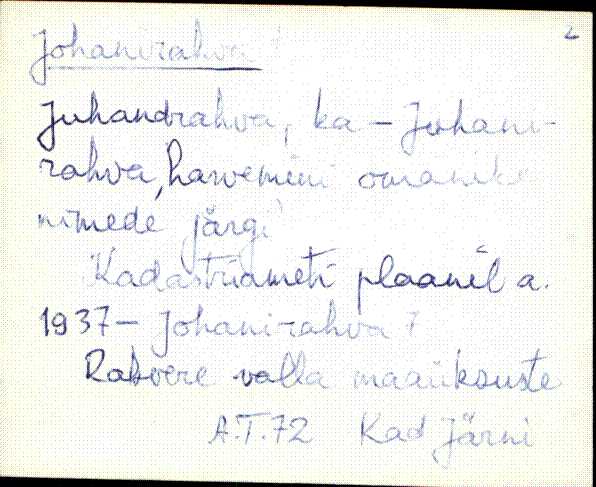 2
Johanirahva
Juhandrahva, ka - Juhani-
rahva, harvemini omanike
nimede järgi
Kadastriameti plaanil a.
1937 - Johanirahva 7
Rakvere valla maaüksuste
A.T. 72 Kad Järni